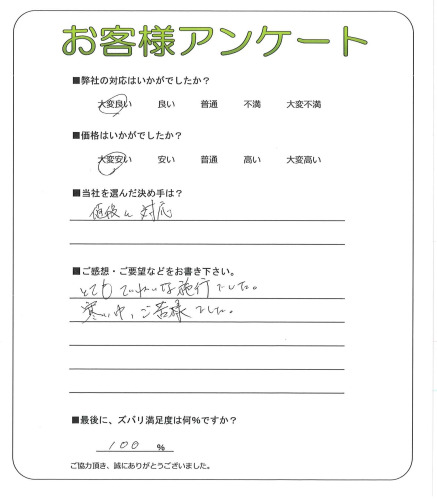 お客様アンケート
■弊社の対応はいかがでしたか？
大変良い 良い 普通 不満 大変不満
■価格はいかがでしたか？
大変安い 安い 普通 高い 大変高い
■当社を選んだ決め手は？
値段と対応
■ご感想・ご要望などをお書き下さい。
とてもていねいな施行でした。
寒い中、ご苦様でした。
■最後に、ズバリ満足度は何%ですか？
100 %
ご協力頂き、誠にありがとうございました。